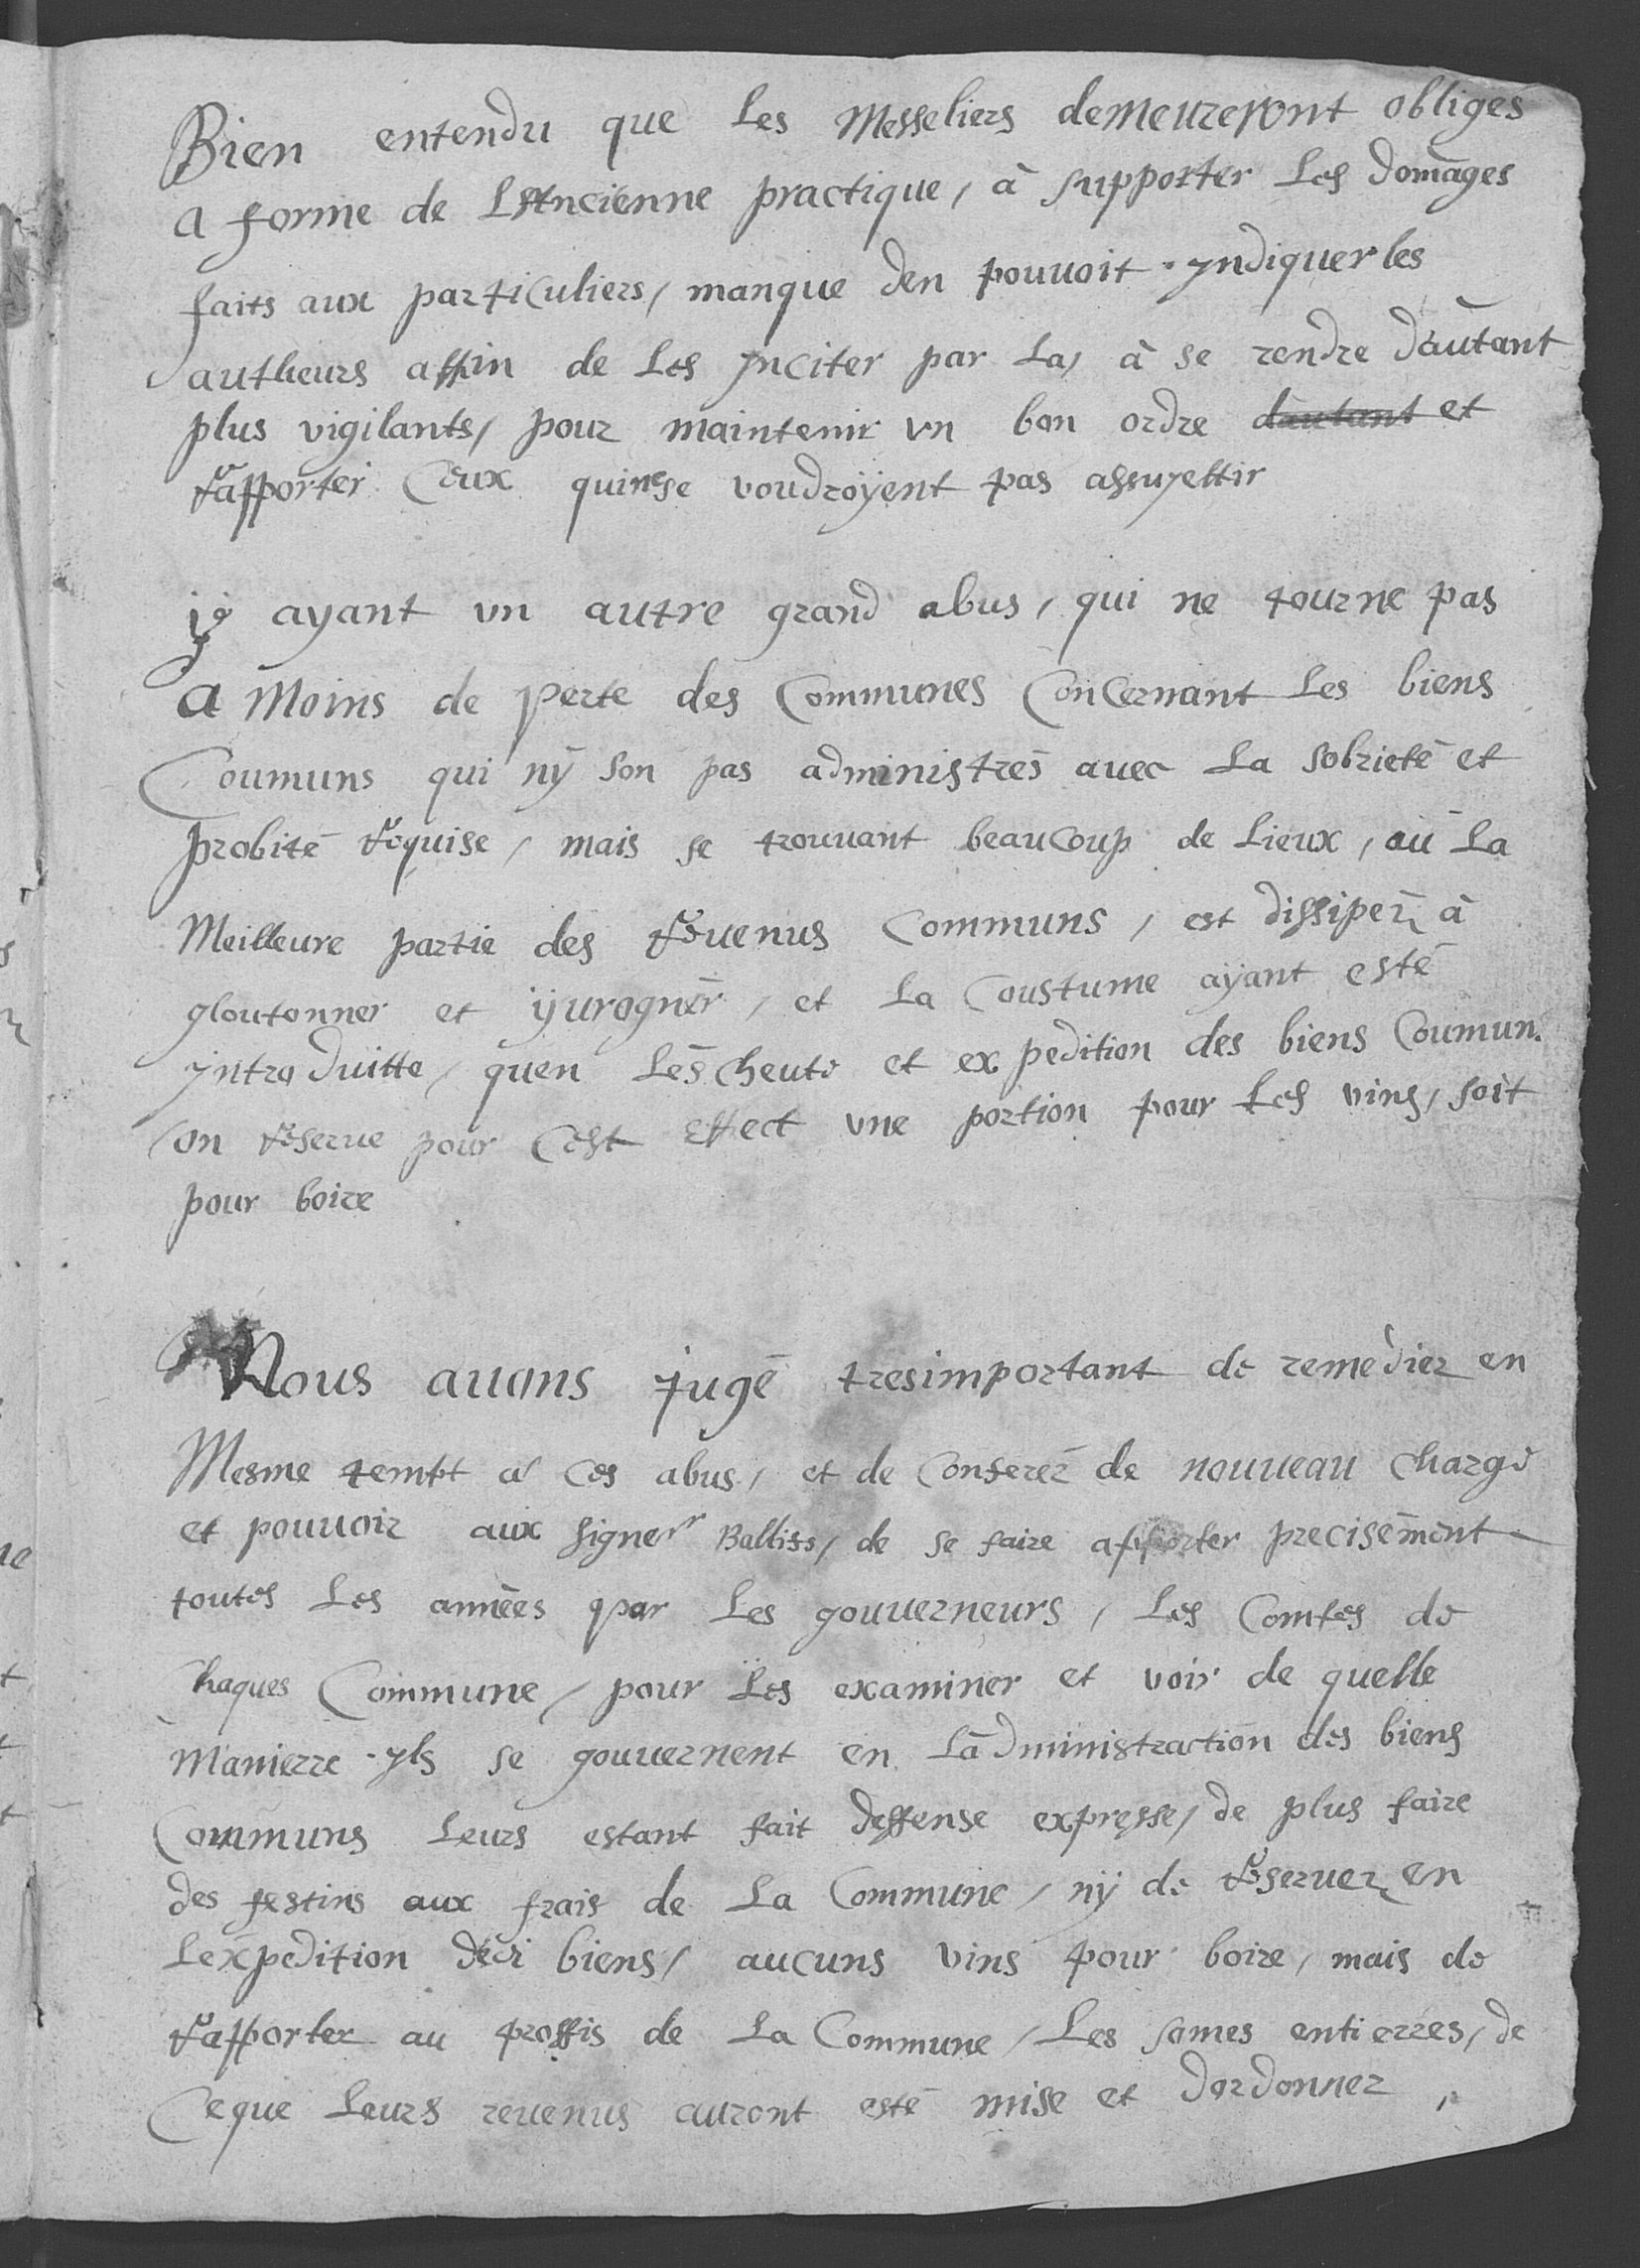 Bien entendu que Les Messeliers demeureront obligés
a forme de LAncienne practique, à supporter Les domages
faits aux particuliers, manque den pouvoit yndiquer les
autheurs affin de Les ynciter par La, à se rendre dautant
plus vigilants, pour maintenir vn bon ordre dautant et
rapporter Ceux qui ne se voudroÿent pas assuyettir
ÿ ayant vn autre grand abus, qui ne tourne pas
a Moins de perte des Communes Concernant Les biens
Coumuns qui nÿ son pas administrés auec La sobrieté et
probité requise, mais se trouuant beauCoup de Lieux, ou La
Meilleure partie des reuenus Communs, est dissiper à
gloutonner et ÿurogner, et La Coustume aÿant esté
yntroduitte, quen Lescheute et expedition des biens Coumun.
on reserue pour Cest effect vne portion pour Les vins, soit
pour boire
Nous auons yugé tresimportant de remedier en
Mesme tempt a Ces abus, et de Conferer de nouueau Charge
et pouuoir aux signers Ballifs, de se faire apporter precisement
toutes Les années par Les gouuerneurs, Les Comtes de
Chaques Commune, pour Les examiner et voir de quelle
Manierre yls se gouuernent en Ladministraction des biens
Communs Leurs estant fait deffense expresse, de plus faire
des festins aux frais de La Commune, nÿ de reseruer en
Lexpedition desdi biens, aucuns vins pour boire, mais de
rapporter au proffis de La Commune, Les somes entierres, de
Ceque Leurs reuenus auront esté mise et dordonner,